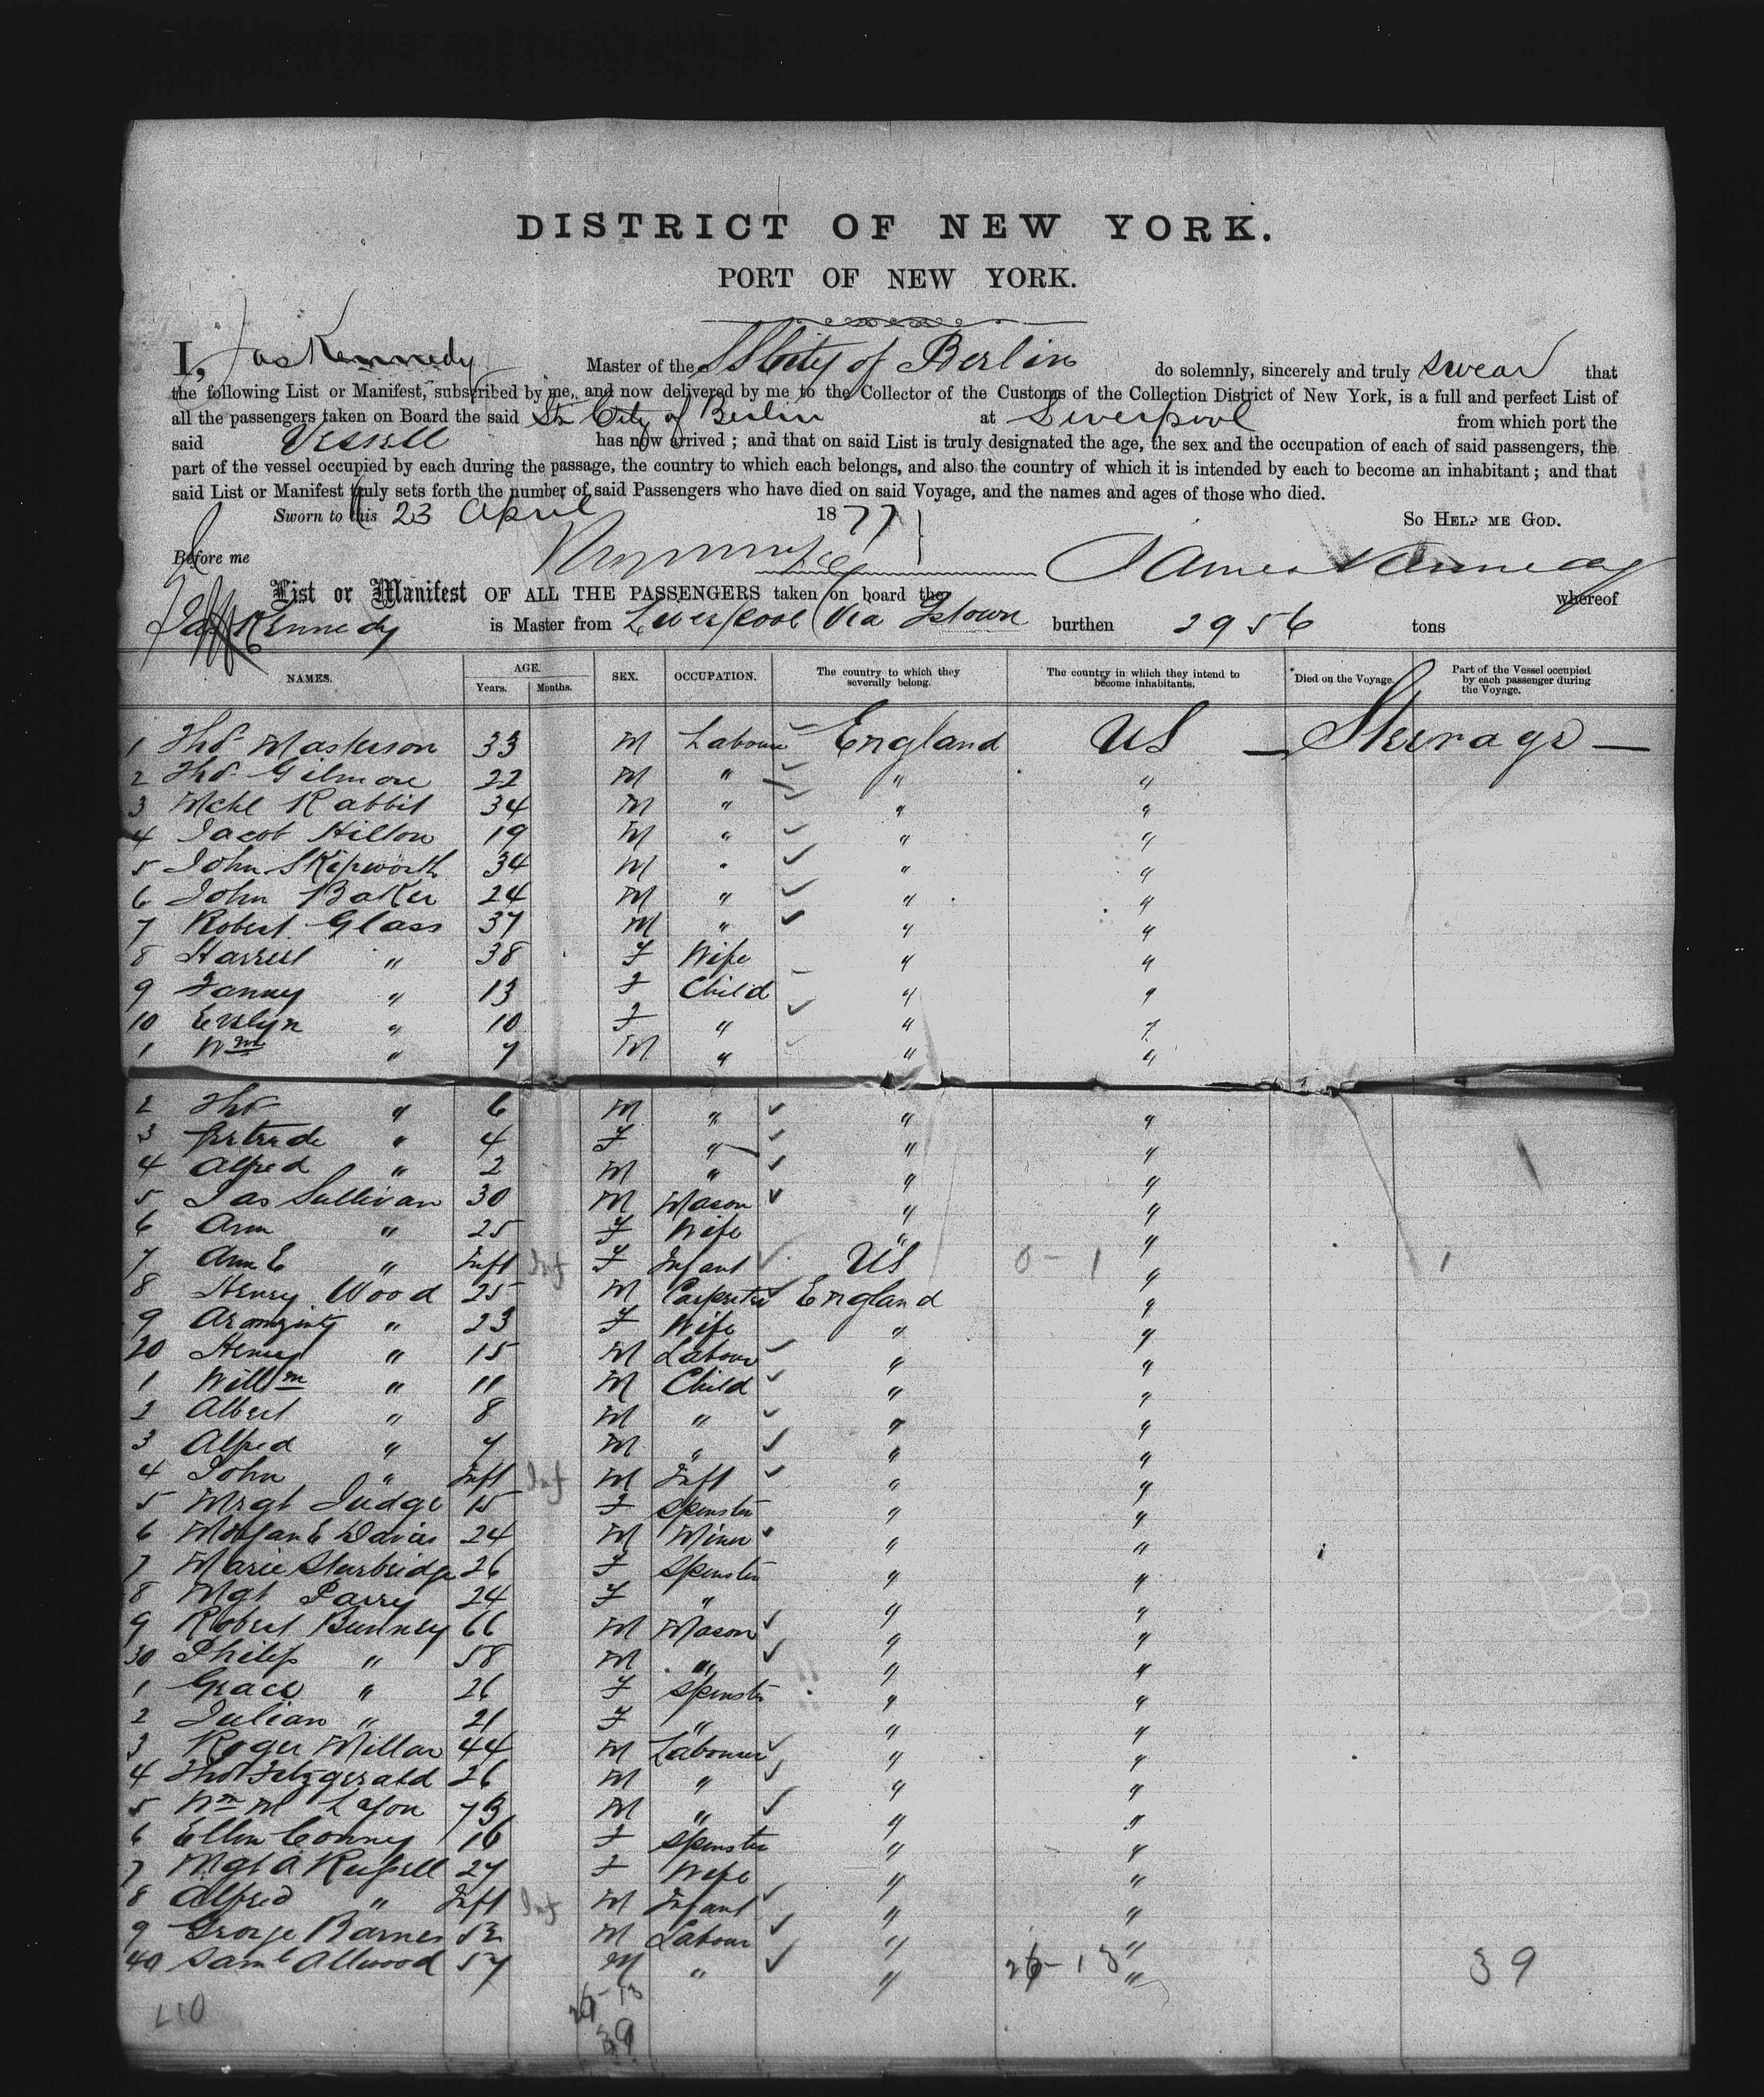 DISTRICT OF NEW YORK.
PORT OF NEW YORK.
I, Jas Kennedy Master of the SS City of Berlin do solemnly, sincerely and truly swear that
the following List or Manifest, subscribed by me, and now delivered by me to the Collector of the Customs of the Collection District of New York, is a full and perfect List of
all the passengers taken on Board the said Str City of Berlin at Liverpool from which port the
said Vessell has now arrived ; and that on said List is truly designated the age, the sex and the occupation of each of said passengers, the
part of the vessel occupied by each during the passage, the country to which each belongs, and also the country of which it is intended by each to become an inhabitant ; and that
said List or Manifest truly sets forth the number of said Passengers who have died on said Voyage, and the names and ages of those who died.
Sworn to this 23 April 1877 So HELP ME GOD.
Before me James Kennedy
List or Manifest OF ALL THE PASSENGERS taken on board the whereof
Jas Kennedy is Master from Liverpool Via Qstown burthen 2956 tons
NAMES. AGE. Years. Months. SEX. OCCUPATION. The country to which they severally belong. The country in which they intend to become inhabitants. *Died on the Voyage. Part of the Vessel occupied by each passenger during the Voyage.
1 Thos Masterson 33 M Labourer England US — Steerage —
2 Thos Gilmore 22 M " " "
3 Mchl Rabbit 34 M " " "
4 Jacob Hilton 19 M " " "
5 John Skipworth 34 M " " "
6 John Baker 24 M " " "
7 Robert Glass 37 M " " "
8 Harriet " 38 F Wife " "
9 Fanny " 13 F Child " "
10 Evelyn " 10 F " " "
1 Wm " 7 M " " "
2 Thos " 6 M " " "
3 Gertrude " 4 F " " "
4 Alfred " 2 M " " "
5 Jas Sullivan 30 M Mason " "
6 Ann " 25 F Wife " "
7 Ann E " Inft Inf F Infant US 0 - 1 " 1
8 Henry Wood 25 M Carpenter England "
9 " 23 F Wife " "
20 Henry " 15 M Labour " "
1 Willm " 11 M Child " "
2 Albert " 8 M " " "
3 Alfred " 7 M " " "
4 John " Inft Inf M Inft " "
5 Mrgt Judge 15 F Spinster " "
6 Morgan E Davies 24 M Miner " "
7 Marie Sturbridge 26 F Spinster " "
8 Mgt Parry 24 F " " "
9 Robert Bunney 66 M Mason " "
30 Philip " 58 M " " "
1 Grace " 26 F Spinster " "
2 Julian " 21 F " " "
3 Roger Millar 44 M Labourer " "
4 Thos Fitzgerald 26 M " " "
5 Wm M Lyon 73 M " " "
6 Ellen Conney 16 F Spinster " "
7 Mgt A Russell 27 F Wife " "
8 Alfred " Inft Inf M Infant " "
9 George Barnes 52 M Labour " "
40 Saml Allwood 57 M " " 26 - 13 " 39
26 - 13
39